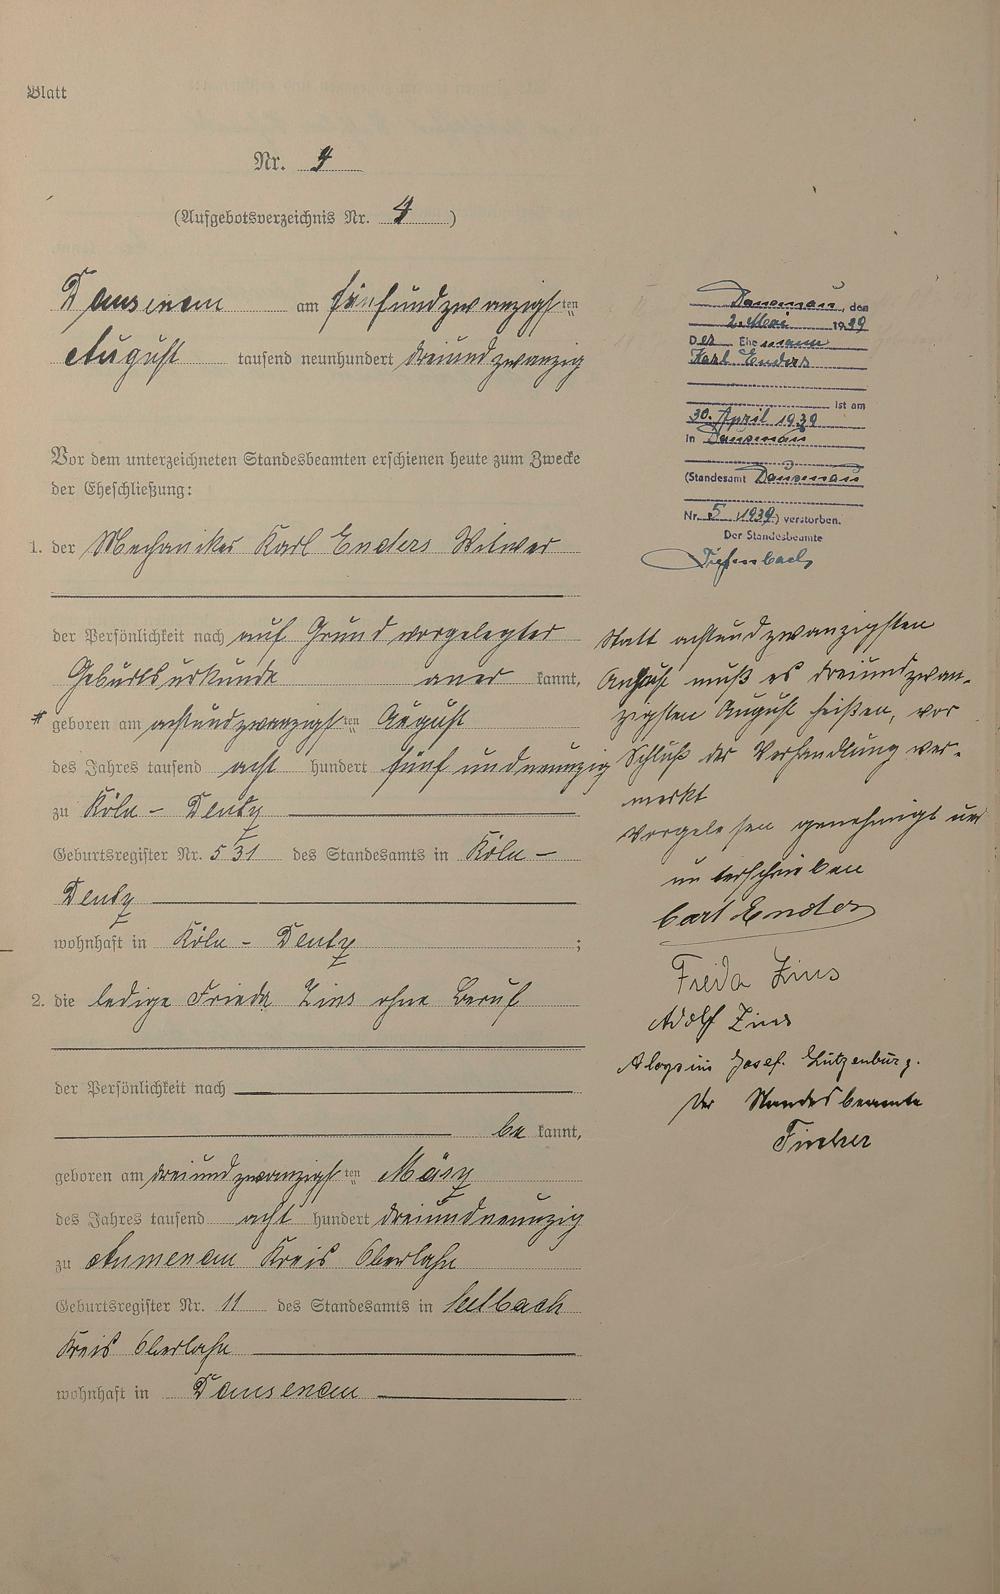 Blatt
Nr. 4
(Aufgebotsverzeichnis Nr. 4)
Dausenau am fünfundzwanzigsten
August tausend neunhundert dreiundzwanzig
Vor dem unterzeichneten Standesbeamten erschienen heute zum Zwecke
der Eheschließung:
1. der Mechaniker Karl Enders Witwer
der Persönlichkeit nach auf Grund vorgelegter
Geburtsurkunde aner kannt,
geboren am achtundzwanzigsten August
des Jahres tausend acht hundert fünfundneunzig
zu Köln - Deutz
Geburtsregister Nr. 531 des Standesamts in Köln -
Deutz
wohnhaft in Köln - Deutz ;
2. die ledige Frieda Zins ohne Beruf
der Persönlichkeit nach
be kannt,
geboren am dreiundzwanzigsten März
des Jahres tausend acht hundert dreiundneunzig
zu Aumenau Kreis Oberlahn
Geburtsregister Nr. 11 des Standesamts in Seelbach
Kreis Oberlahn
wohnhaft in Dausenau
Dausenau, den
2. Mai 1939
Der Ehemann
Karl Enders
ist am
30. April 1939
in Dausenau
(Standesamt Dausenau
Nr. 5/1939) verstorben.
Der Standesbeamte
Statt achtundzwanzigsten
August muß es dreiundzwan-
zigsten August heißen, vor
Schluß der Verhandlung ver-
merkt
Vorgelesen genehmigt und
unterschrieben
Carl Enders
Frieda Zins
Adolf Zins
Aloysius Josef Lützenburg.
Der Standesbeamte
Fischer